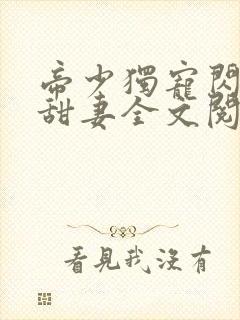 帝少獨寵閃
甜妻全文閱
看見我沒有